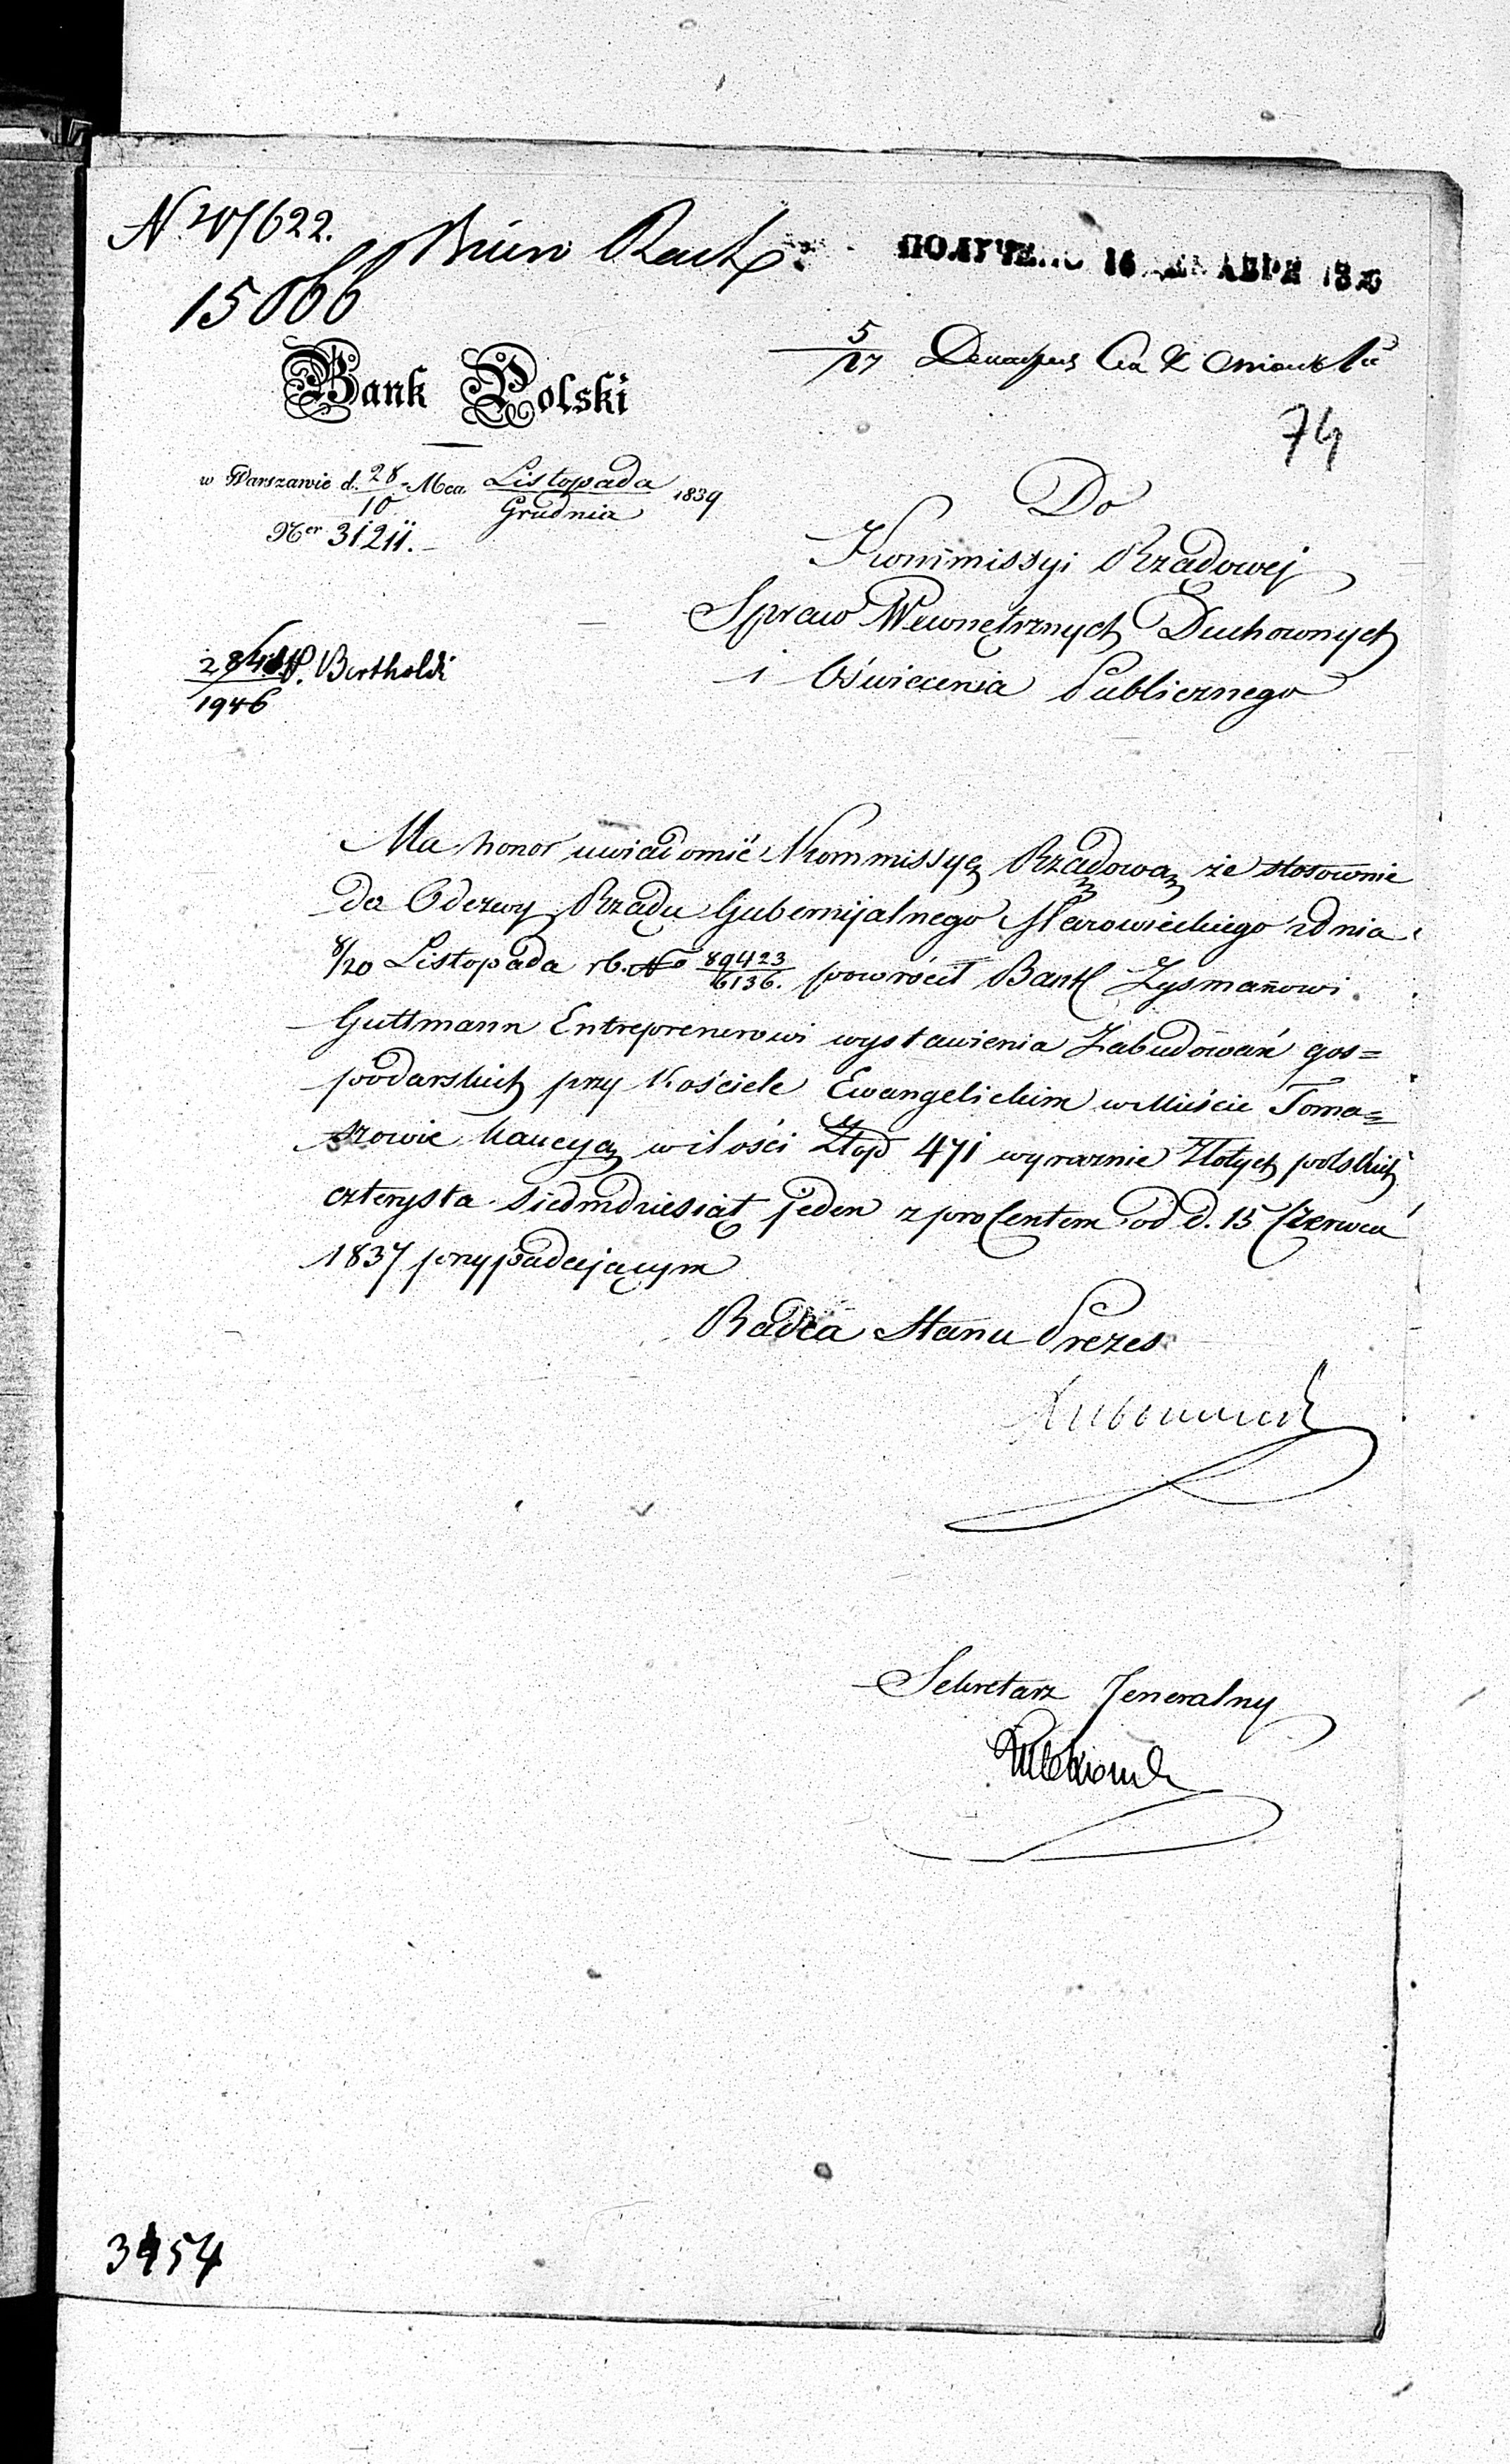 15066
Biuro Rach:
ПОЛУЧЕНО 16 ДЕКАБРЯ
5/17
74
Bank Polski
w Warszawie d. 28/10 Mca Listopada/Grudnia 1839
Ner 31211.
Do
Kommissyi Rządowej
Spraw Wewnętrznych Duchownych
i Oświecenia Publicznego
Bertholdi
1946
Ma honor uwiadomić Kommissyą Rządową, że stosownie
do Odezwy Rządu Gubernijalnego Mazowieckiego z dnia
8/20 Listopada rb. No 89423/6136. powrócił Bank Zysmanowi
Guttmann Entreprenerowi wystawienia Zabudowań gos=
podarskich przy Kościele Ewangelickim w Mieście Toma=
szowie kaucyą w ilości Złop 471 wyraznie Złotych polskich
czterysta siedmdziesiąt jeden z procentem od d. 15 Czerwca
1837 przypadającym
Radca Stanu Prezes
Sekretarz Jeneralny
3454